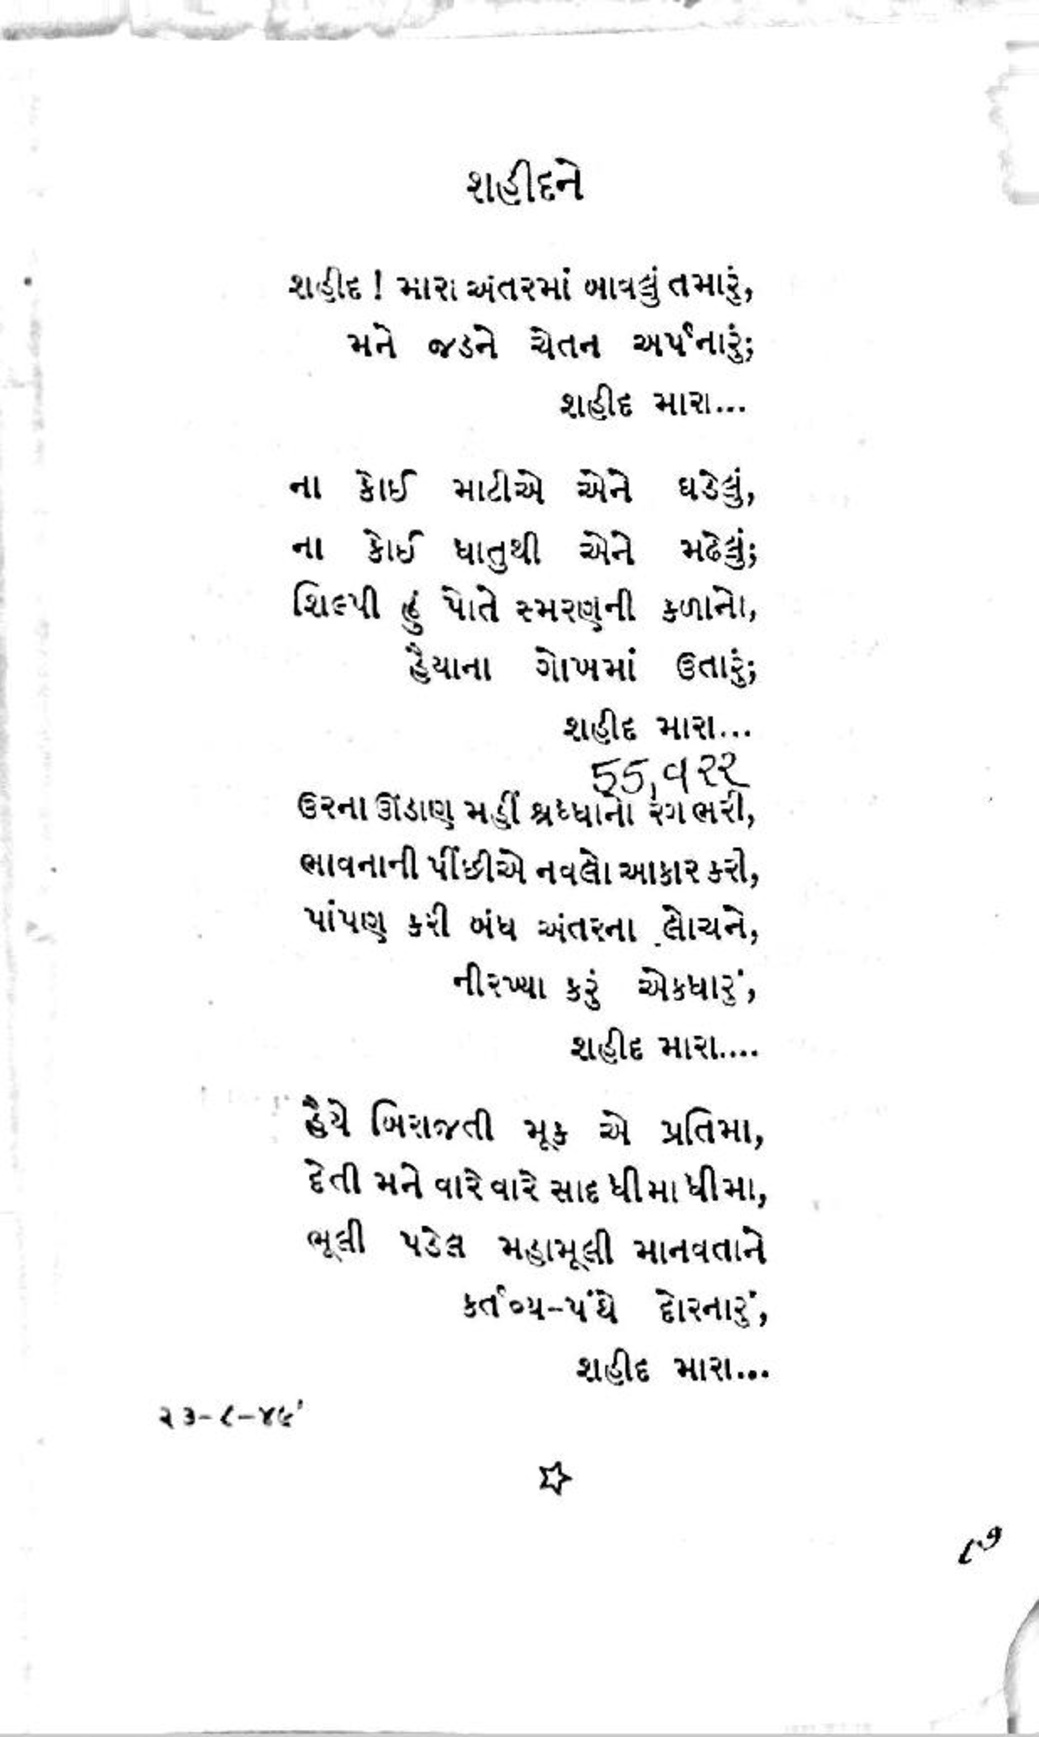 શહીદને
શહીદ ! મારા અંતરમાં બાવલું તમારું,
મને જડને ચેતન અર્પનારું;
શહીદ મારા...
ના કોઈ માટીએ એને ઘડેલું,
ના કોઈ ધાતુથી એને મઢેલું;
શિલ્પી હું પોતે સ્મરણની કળાનો,
હૈયાના ગોખમાં ઉતારું;
શહીદ મારા...
૬૬,૧૨૨
ઉરના ઊંડાણ મહીં શ્રધ્ધાનો રંગ ભરી,
ભાવનાની પીંછીએ નવલો આકાર કરી,
પાંપણ કરી બંધ અંતરના લોચને,
નીરખ્યા કરું એકધારું,
શહીદ મારા....
હૈયે બિરાજતી મૂક એ પ્રતિમા,
દેતી મને વારે વારે સાદ ધીમા ધીમા,
ભૂલી પડેલ મહામૂલી માનવતાને
કર્તવ્ય-પંથે દોરનારું,
શહીદ મારા...
૨૩-૮-૪૬'
૮૭